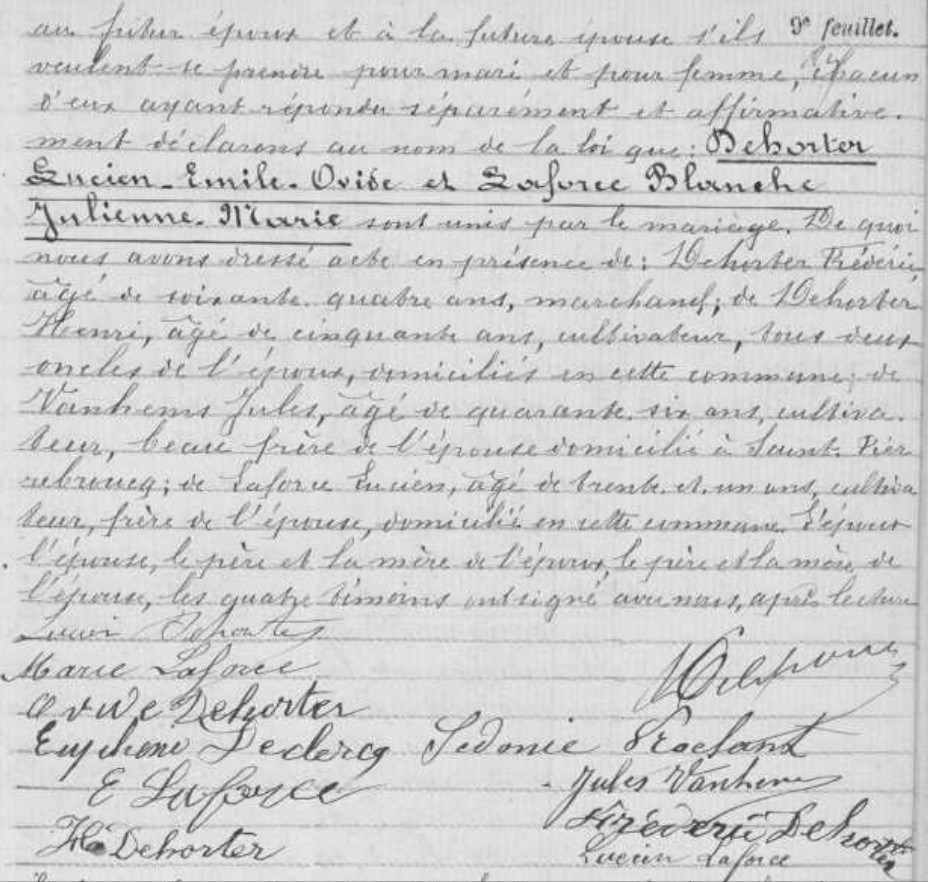 9e feuillet.
au futur époux et à la future épouse s'ils
veulent se prendre pour mari et pour femme, chacun
d'eux ayant répondu séparément et affirmative.
ment déclarons au nom de la loi que: Dehorter
Lucien-Emile-Ovide et Laforce Blanche
Julienne-Marie sont unis par le mariage. De quoi
nous avons dressé acte en présence de: Dehorter Frédéric,
âgé de soixante-quatre ans, marchand; de Dehorter
Henri, âgé de cinquante ans, cultivateur, tous deux
oncles de l'époux, domiciliés en cette commune; de
Vanhems Jules, âgé de quarante-six ans, cultiva.
teur, beau frère de l'épouse domicilié à Saint-Pier
rebroucq; de Laforce Lucien, âgé de trente-et-un ans, cultiva
teur, frère de l'épouse, domicilié en cette commune. L'époux
l'épouse, le père et la mère de l'époux, le père et la mère de
l'épouse, les quatre témoins ont signé avec nous, après lecture
Dehorter
Marie Laforce
Ovide Dehorter
Declercq Sedonie
E Laforce
Jules Vanhems
H Dehorter
Frédéric Dehorter
Lucien Laforce